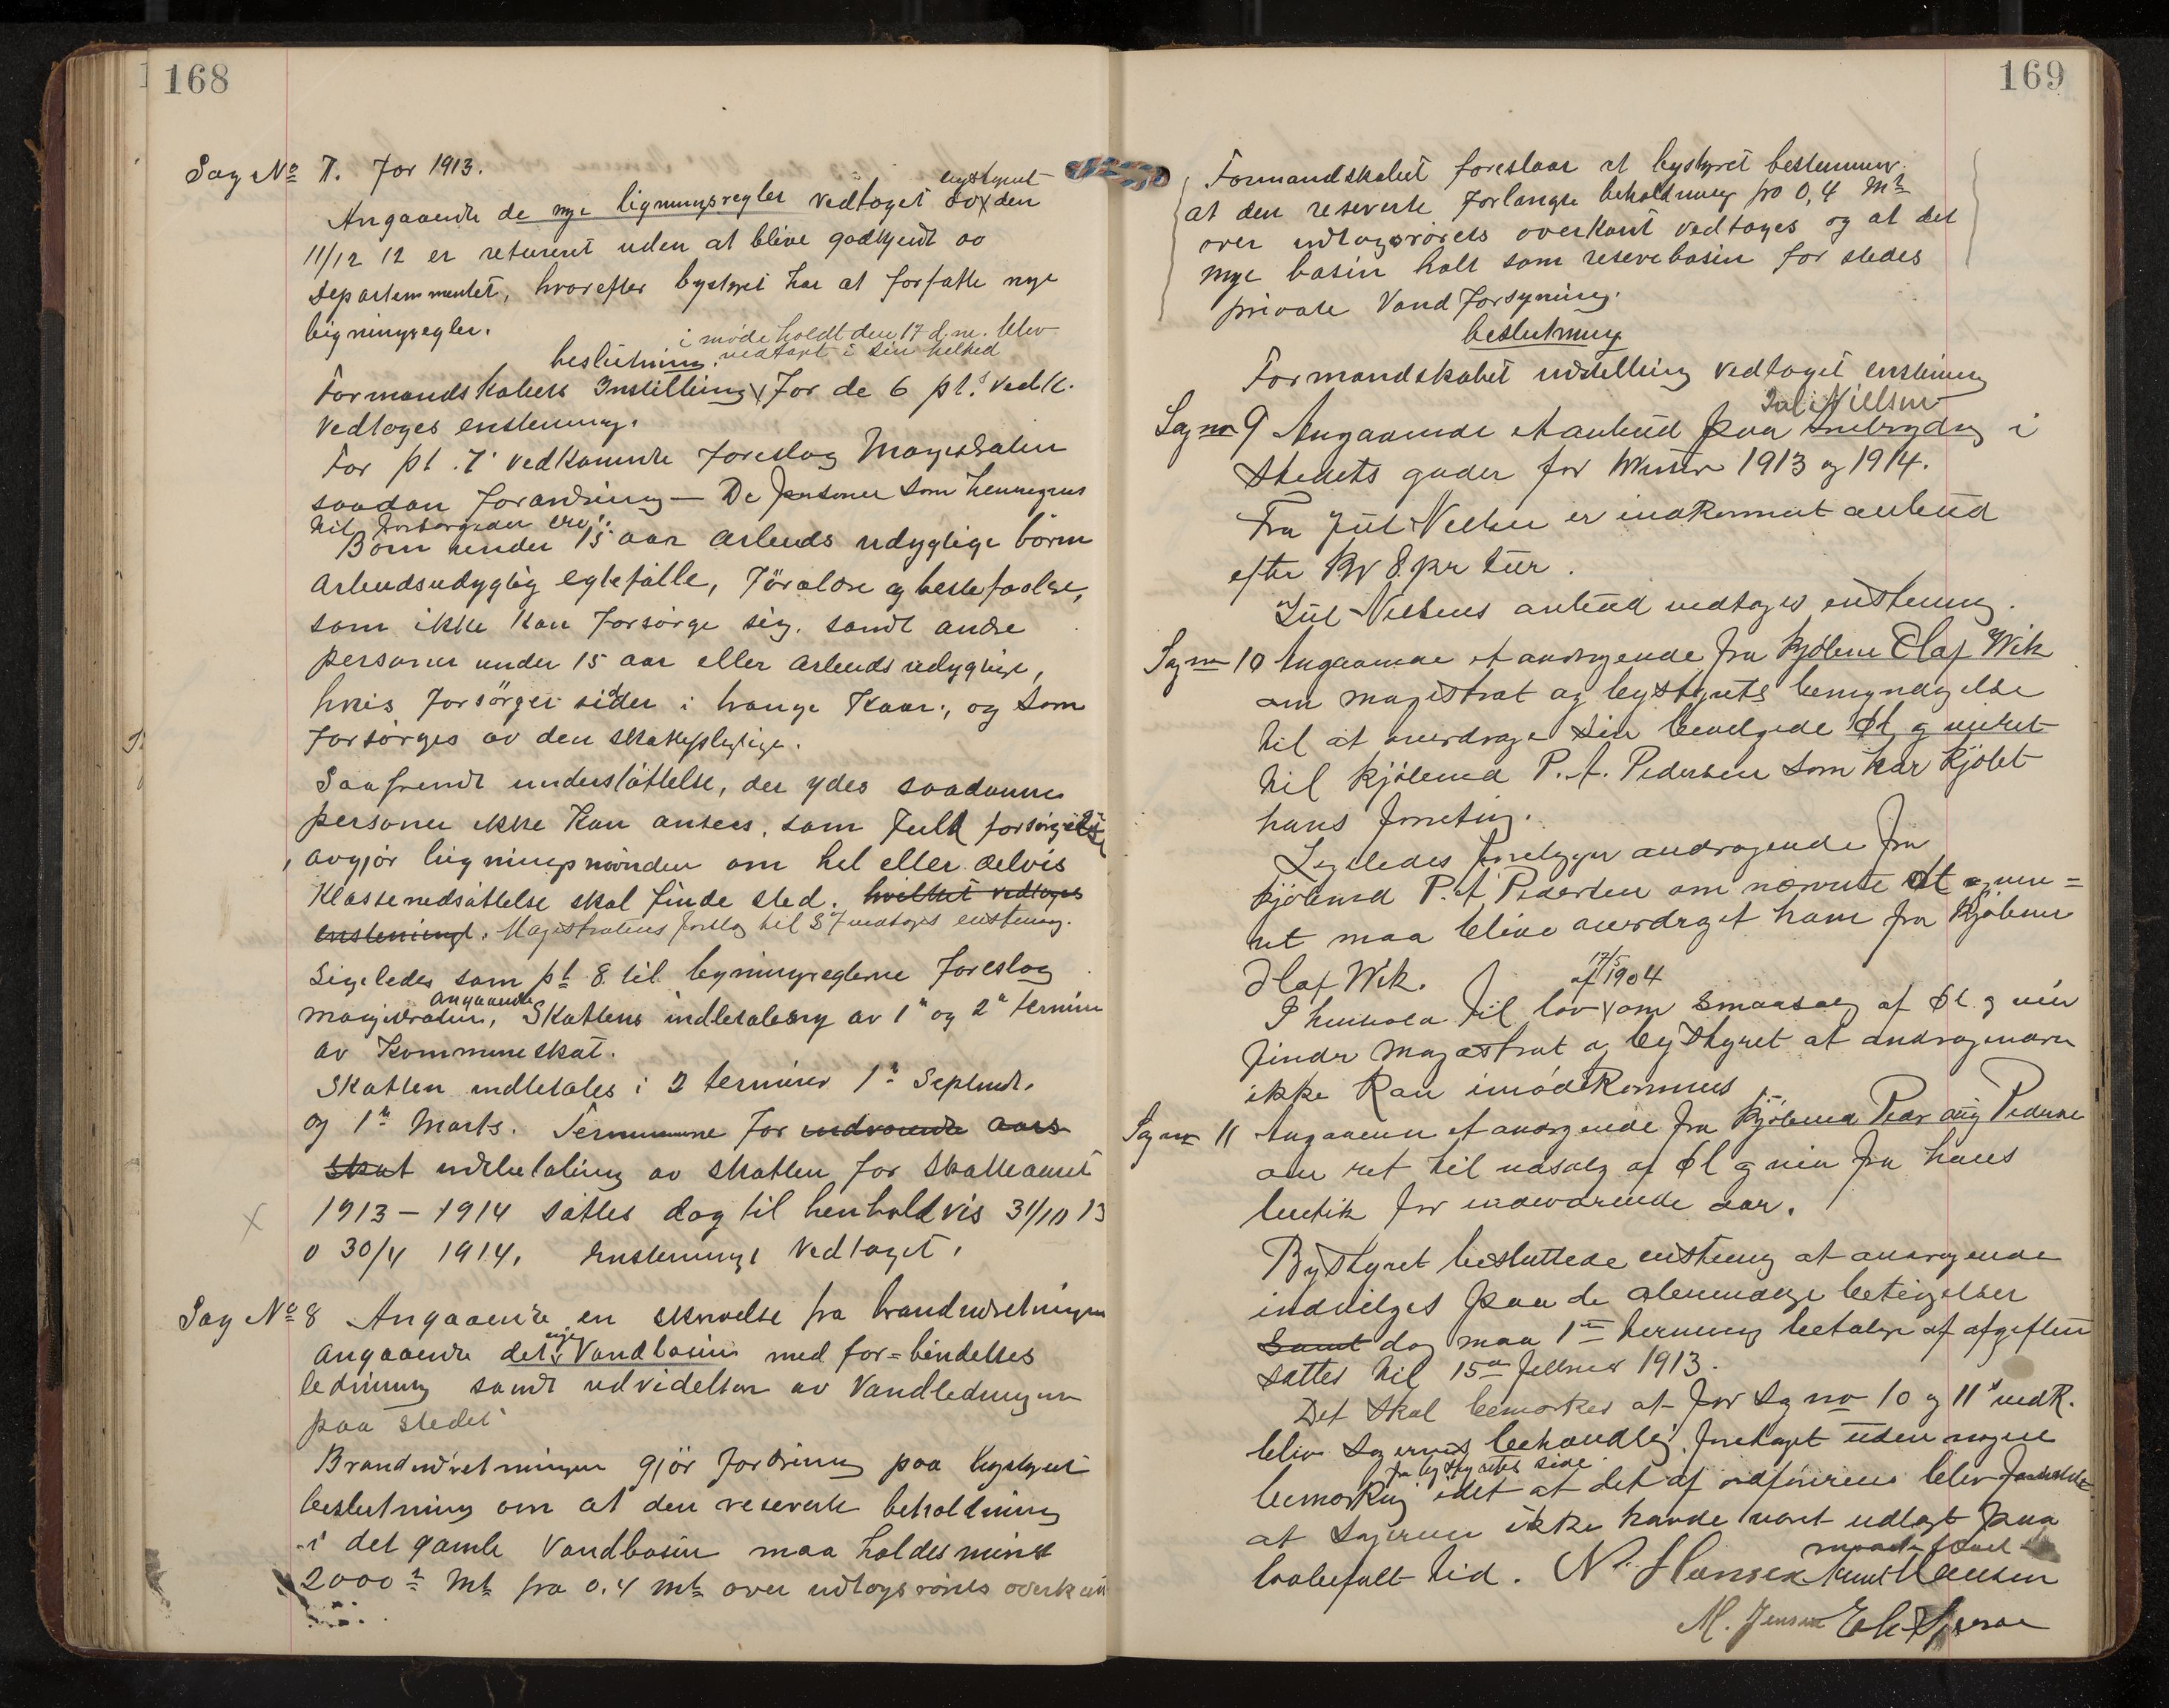 168
Sag No 7. for 1913.
Angaaende de nye ligningsregler vedtaget av bystyret den
11/12 12 er returnert uden at blive godkjendt av
Departementet, hvorefter bystyret har at forfatte nye
ligningsregler.
beslutning. i møde holdt den 17 d.m. blev vedtaget i sin helhed
Formandskabets Instilling for de 6 pt.s vedk.
vedtages enstemmig.
For pt. 7 vedkommende foreslog Magistraten
saadan forandring — De personer som henregnes
til forsørgeden ere:
Børn under 15 aar arbeids udygtige børn
arbeidsudygtig egtefælle, förældre og besteforeldre,
som ikke kan forsørge sig, samt andre
personer under 15 aar eller arbeids udygtige,
hvis forsørger sidder i trange kaar, og som
forsørges av den skattepligtige.
Saafremt understøttelse, der ydes saadanne
personer ikke kan ansees, som fuld forsørgelse
avgjør ligningsnævnden om hel eller delvis
Klassenedsættelse skal finde sted. hvilket vedtages
enstemmigt. Magistratens forslag til § 7 vedtages enstemmig.
Ligeledes som pt 8 til ligningsreglerne foreslog
magistraten, angaaende Skattens indbetaling av 1ste og 2den termin
av Kommuneskat.
Skatten indbetales i 2 terminer 1ste Septembr.
og 1ste Marts. Terminerne for indværende aars
skat indbetaling av skatten for skatteaaret
1913 – 1914 sættes dog til henholdvis 31/10 13
o 30/4 1914. Enstemmigt vedtaget.
Sag No 8 Angaaende en skrivelse fra brandindretningen
angaaende det nye Vandbasin med for=bindelses
ledning samt udvidelsen av Vandledningen
paa stedet
Brandindretningen gjör fordring paa bystyrets
beslutning om at den reserverte beholdning
i det gamle Vandbasin maa holdes minst
2000 mt fra 0.4 mt over udtagsrörets overkant
169
Formandskabet foreslaar at bystyret bestemmer
at den reserverte forlangte beholdning fra 0,4 mt
over udtagsrörets overkant vedtages og at det
nye basin holt som reservebasin for stedes
private Vandforsyning.
beslutning
Formandskabet indstilling vedtaget enstemmig
Sag no 9 Angaaende et anbud paa Snebrydng i
Jul Nielsen
Stedets gader for Vinter 1913 og 1914.
Fra Jul Nielsen er indkommet anbud
efter Kr 8 pr tur.
Jul Nielsens anbud vedtages enstemmig.
Sag no 10 Angaaende et andragende fra kjøbmd Olaf Wik
om magistrat og bystyrets bemyndigelse
til at overdrage sin bevilgede øl og vinret
til kjøbmd P. A. Pedersen som har kjøbt
hans forretning.
Ligeledes foreligger andragende fra
kjøbmd P. A. Pedersen om nævnte øl og vin=
ret maa blive overdraget ham fra Kjøbmn
Olaf Wik.
I henhold til lov af 17/5 1904 om smaasalg af øl og vin
finder magistrat og bystyret at andragendern
ikke kan imødekommes
Sag no 11 Angaaende et andragende fra kjøbmd Pedr Aug Pedersen
om ret til udsalg af øl og vin fra hans
butik for indeværende aar.
Bystyret besluttede enstemmig at andragende
indvilges paa de almindelige betingelser
Samt dog maa 1ste termins betaling af afgiften
sættes til 15de Februar 1913.
Det skal bemærkes at for Sag no 10 og 11s vedk.
blev Sagernes behandling foretaget uden nogen
bemærkning fra bystyrets side idet at det af ordføreren blev forholdt
at Sagerne ikke havde været udlagt paa
lovbefalt tid. N. Hansen Knut Hansen
M. Jensen